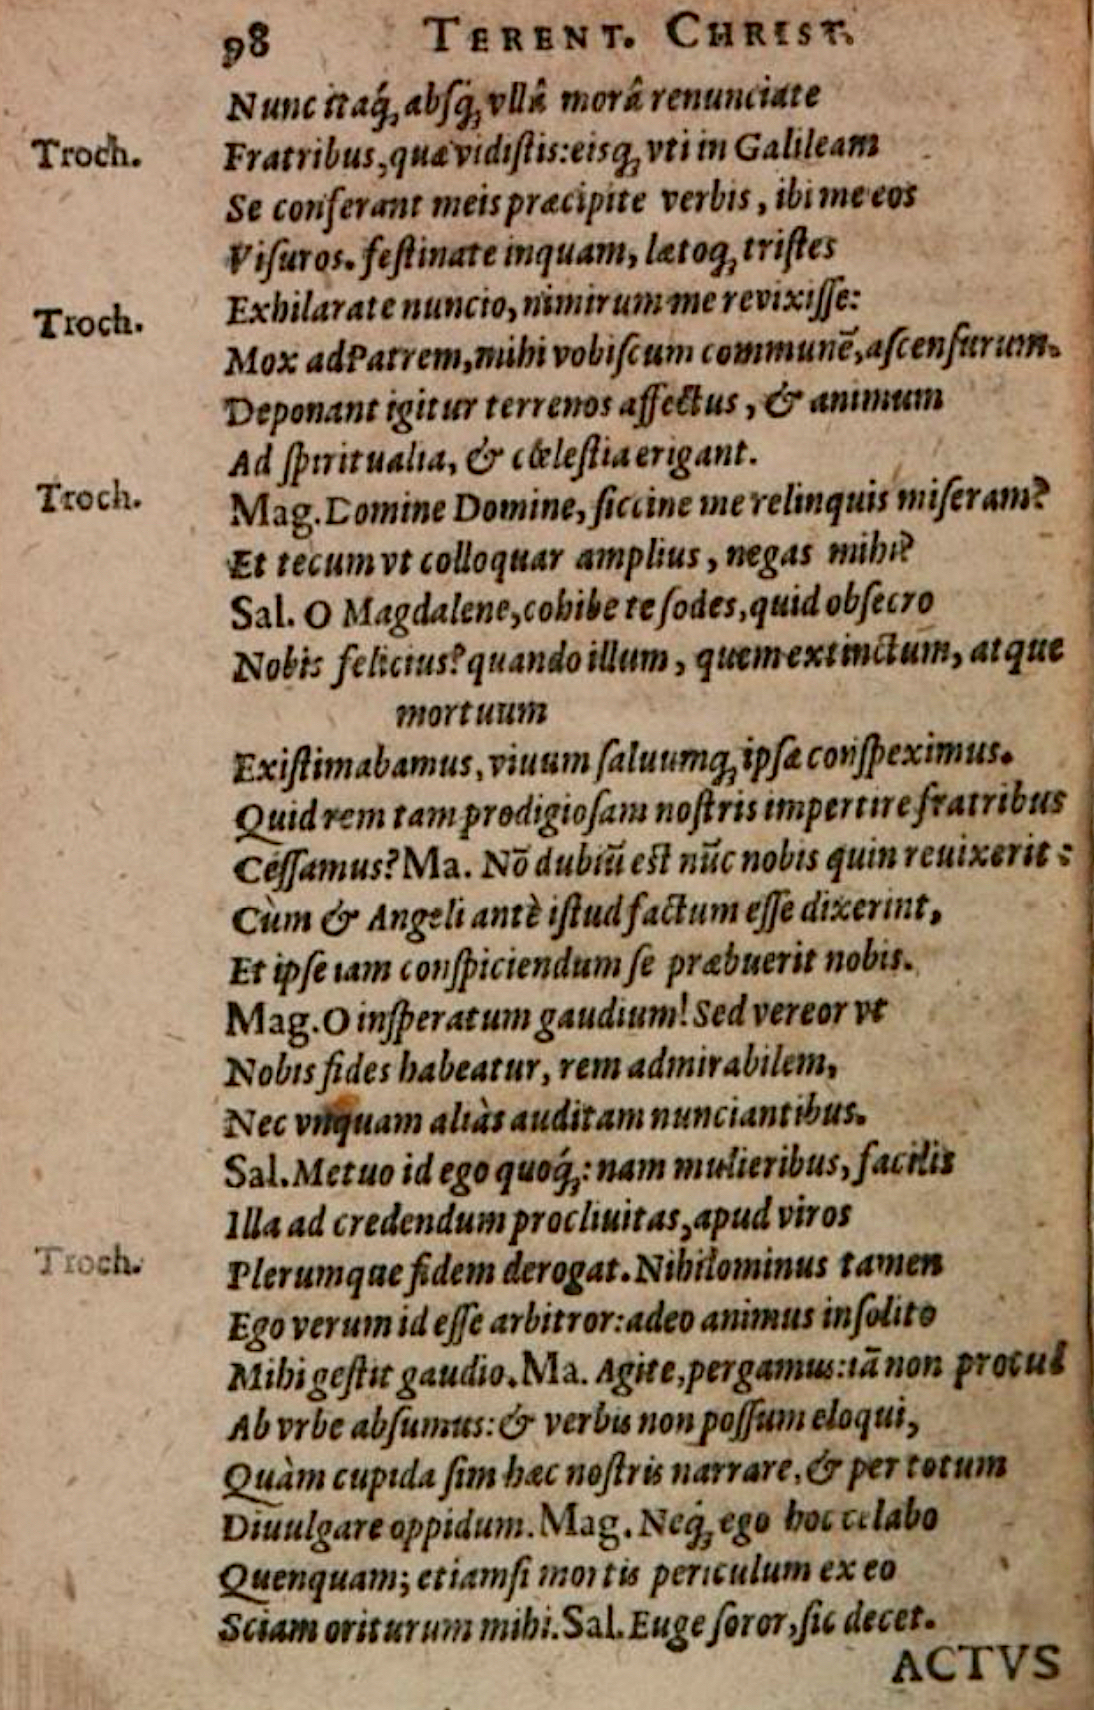 98 TERENT. CHRIST.
Nunc itaq́ꝫ absq́ꝫ vllâ morâ renunciate
Troch. Fratribus, quæ vidiſtis: eisqꝫ vti in Galileam
Se conferant meis præcipite verbis, ibi me eos
Viſuros. feſtinate inquam, lætoqꝫ triſtes
Troch. Exhilarate nuncio, nimirum me revixiſſe:
Mox ad Patrem, mihi vobiſcum commune᷉, aſcenſurum.
Deponant igitur terrenos affectus, & animum
Ad ſpiritualia, & cœleſtia erigant.
Troch. Mag. Domine Domine, ſiccine me relinquis miſeram?
Et tecum vt colloquar amplius, negas mihi?
Sal. O Magdalene, cohibe te ſodes, quid obſecro
Nobis felicius? quando illum, quem extinctum, atque
mortuum
Exiſtimabamus, viuum ſaluumqꝫ ipſæ conſpeximus.
Quid rem tam prodigioſam noſtris impertire fratribus
Ceſſamus? Ma. Nō dubiū eſt nūc nobis quin reuixerit:
Cùm & Angeli antè iſtud factum eſſe dixerint,
Et ipſe iam conſpiciendum ſe præbuerit nobis.
Mag. O inſperatum gaudium! Sed vereor vt
Nobis fides habeatur, rem admirabilem,
Nec vnquam aliàs auditam nunciantibus.
Sal. Metuo id ego quoq́ꝫ: nam mulieribus, facilis
Illa ad credendum procliuitas, apud viros
Troch. Plerumque fidem derogat. Nihilominus tamen
Ego verum id eſſe arbitror: adeo animus inſolito
Mihi geſtit gaudio. Ma. Agite, pergamus: iā non procul
Ab vrbe abſumus: & verbis non poſſum eloqui,
Quàm cupida ſim hæc noſtris narrare, & per totum
Diuulgare oppidum. Mag. Neq́ꝫ ego hoc celabo
Quenquam; etiamſi mortis periculum ex eo
Sciam oriturum mihi. Sal. Euge ſoror, ſic decet.
ACTVS